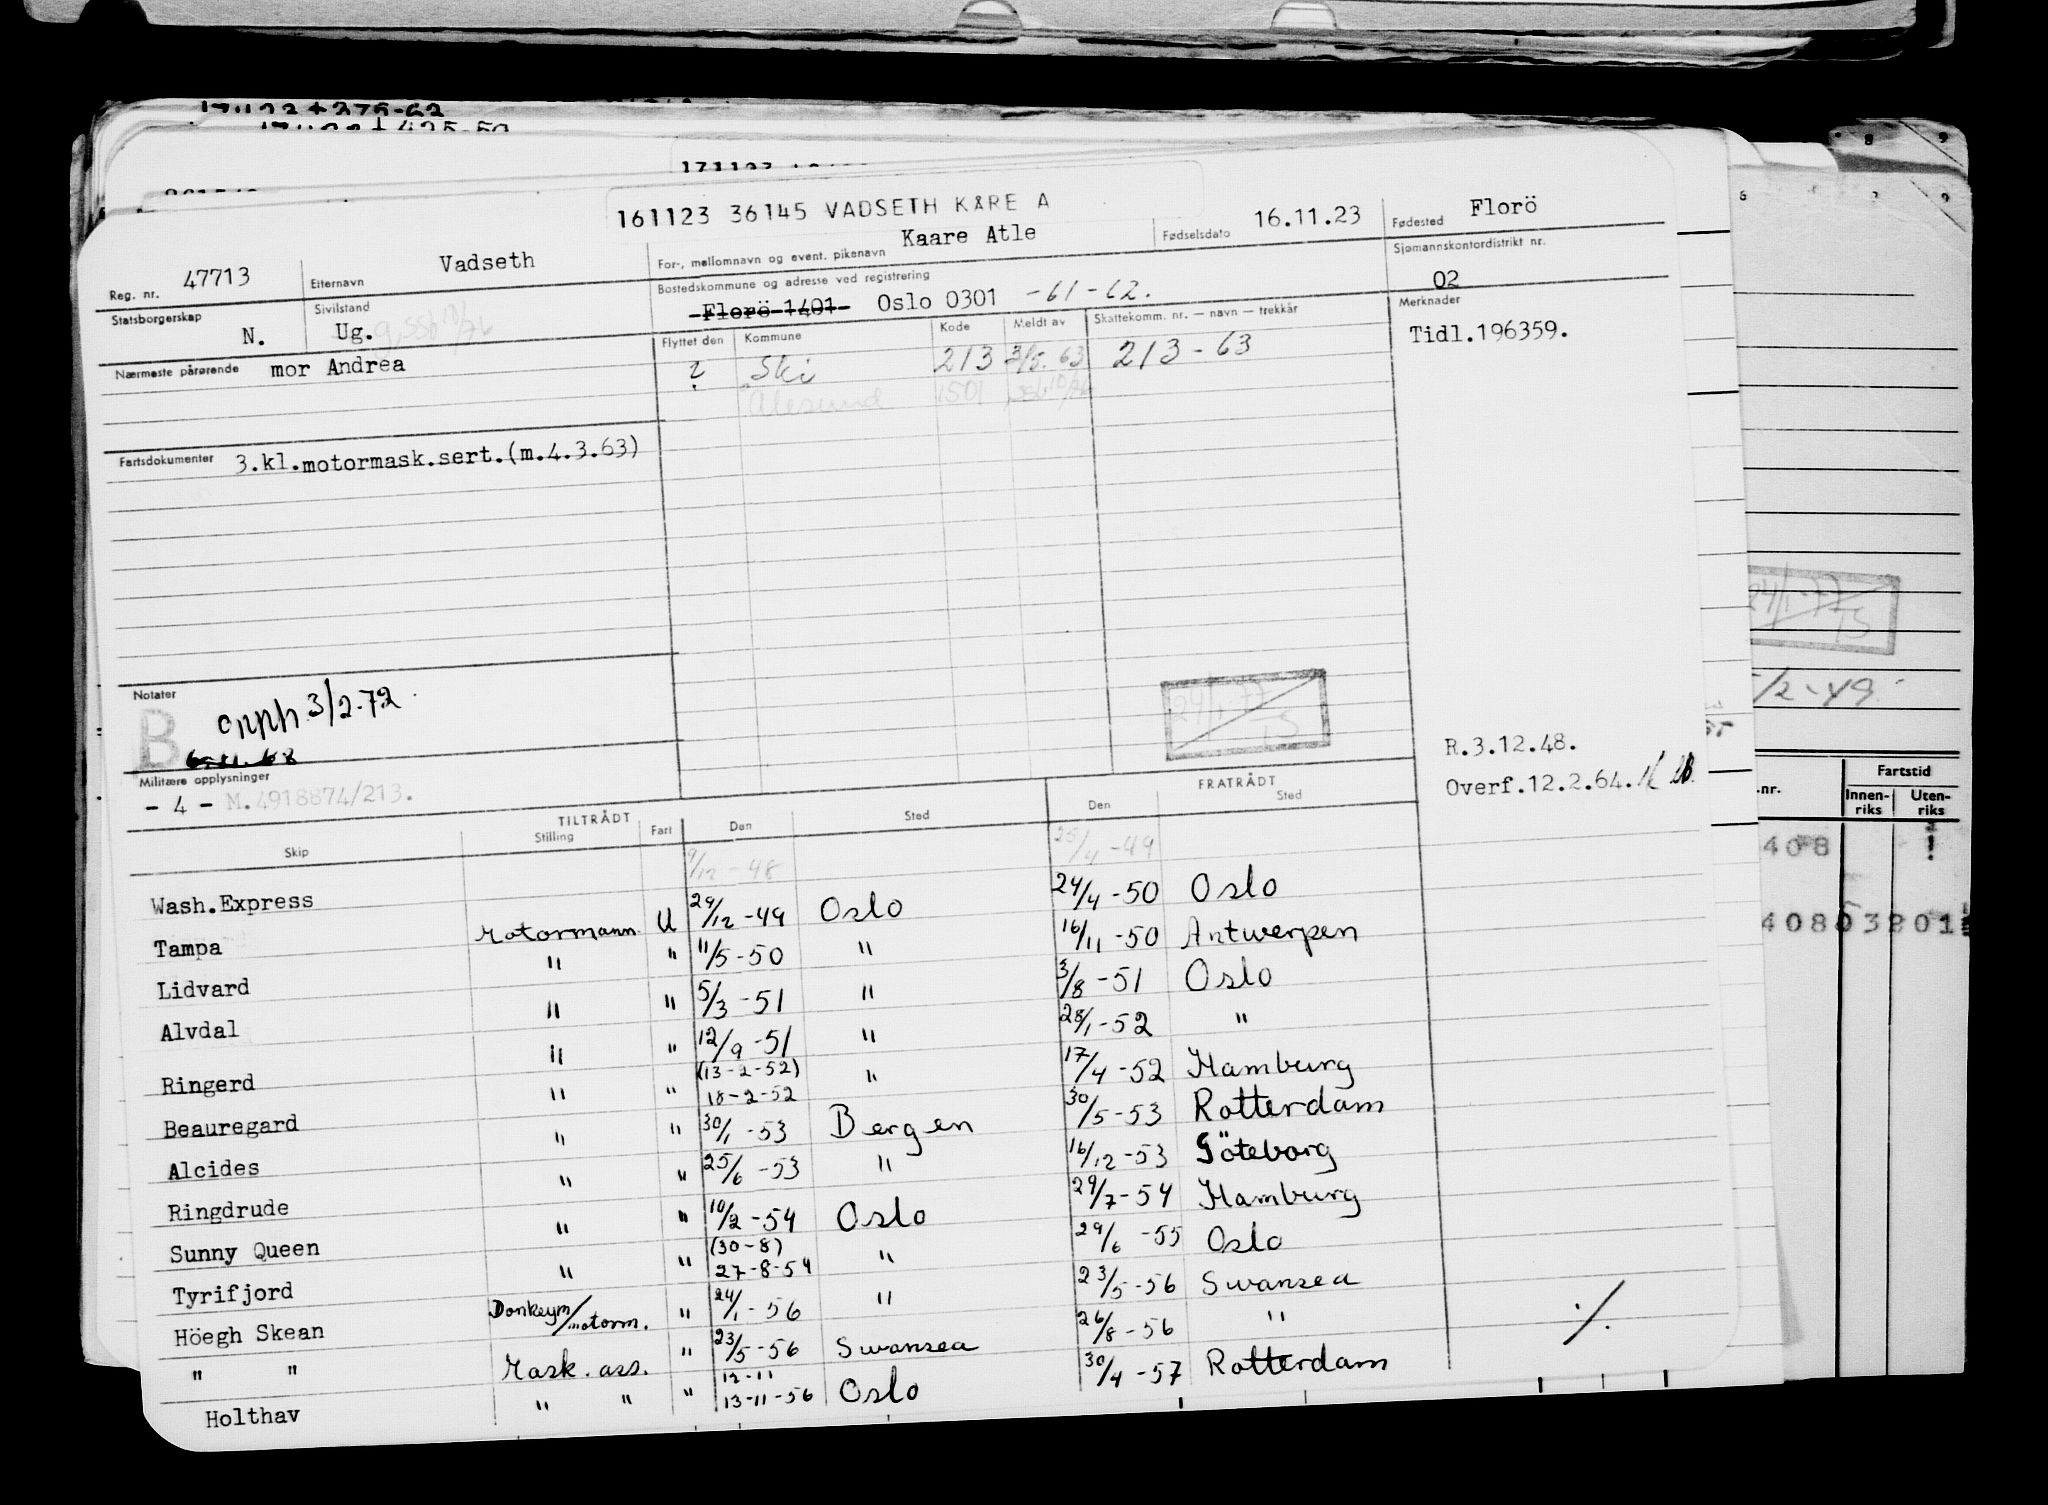 161123 36145 VADSETH KÅRE A
Reg. nr. 47713 Etternavn Vadseth For-, mellomnavn og event. pikenavn Kaare Atle Fødselsdato 16.11.23 Fødested Florö
Statsborgerskap N. Sivilstand Ug. Bostedskommune og adresse ved registrering Florö 1401 Oslo 0301 -61-62. Sjømannskontordistrikt nr. 02
Nærmeste pårørende mor Andrea Flyttet den Kommune Kode Meldt av Skattekomm. nr. — navn — trekkår Merknader Tidl.196359.
? Ski 213 3/5. 63 213-63
Ålesund 1501
Fartsdokumenter 3.kl.motormask.sert.(m.4.3.63)
Notater
B 3/2-72.
24/1-77
R.3.12.48.
Militære opplysninger
- 4 - M.4918874/213.
Overf.12.2.64.
TILTRÅDT FRATRÅDT
Skip Stilling Fart Den Sted Den Sted
9/12-48 25/4-49
Wash.Express Motormann U 29/12-49 Oslo 24/4-50 Oslo
Tampa " " 11/5-50 " 16/11-50 Antwerpen
Lidvard " " 5/3-51 " 3/8-51 Oslo
Alvdal " " 12/9-51 " 28/1-52 "
Ringerd " " (13-2-52) 18-2-52 " 17/4-52 Hamburg
Beauregard " " 30/1-53 Bergen 30/5-53 Rotterdam
Alcides " " 25/6-53 " 16/12-53 Göteborg
Ringdrude " " 10/2-54 Oslo 29/7-54 Hamburg
Sunny Queen " " (30-8) 27-8-54 " 29/6-55 Oslo
Tyrifjord Donkeym/motorm. " 24/1-56 " 23/5-56 Swansea
Höegh Skean Mask. ass. " 23/5-56 Swansea 26/8-56 "
" " " " " 12-11 13-11-56 Oslo 30/4-57 Rotterdam
Holthav
./.
24/1-77
/2-49.
.nr. Fartstid
Innen-riks Uten-riks
408
408 03201